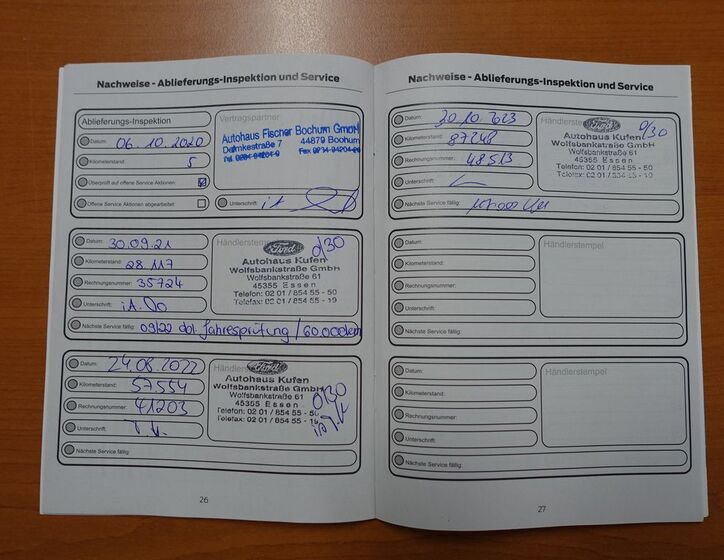 Nachweise - Ablieferungs-Inspektion und Service
Ablieferungs-Inspektion
Datum: 06.10.2020
Kilometerstand: 5
Überprüft auf offene Service Aktionen:
Offene Service Aktionen abgearbeitet:
Vertragspartner
Autohaus Fischer Bochum GmbH
Daimkestraße 7 44879 Bochum
Unterschrift:
Datum: 30.09.21
Kilometerstand: 28.117
Rechnungsnummer: 35724
Unterschrift:
Nächste Service fällig: 09/22 od. Jahresprüfung / 60.000km
Händlerstempel
Ford
Autohaus Kufen
Wolfsbankstraße GmbH
Wolfsbankstraße 61
45355 Essen
Telefon: 02 01 / 854 55 - 50
Telefax: 02 01 / 854 55 - 19
Datum: 24.08.2022
Kilometerstand: 57554
Rechnungsnummer: 41203
Unterschrift:
Nächste Service fällig:
Händlerstempel
Ford
Autohaus Kufen
Wolfsbankstraße GmbH
Wolfsbankstraße 61
45355 Essen
Telefon: 02 01 / 854 55 - 50
Telefax: 02 01 / 854 55 - 19
26
Nachweise - Ablieferungs-Inspektion und Service
Datum: 20.10.2023
Kilometerstand: 87248
Rechnungsnummer: 48513
Unterschrift:
Nächste Service fällig:
Händlerstempel
Ford
Autohaus Kufen
Wolfsbankstraße GmbH
Wolfsbankstraße 61
45355 Essen
Telefon: 02 01 / 854 55 - 50
Telefax: 02 01 / 854 55 - 19
Datum:
Kilometerstand:
Rechnungsnummer:
Unterschrift:
Nächste Service fällig:
Händlerstempel
Datum:
Kilometerstand:
Rechnungsnummer:
Unterschrift:
Nächste Service fällig:
Händlerstempel
27